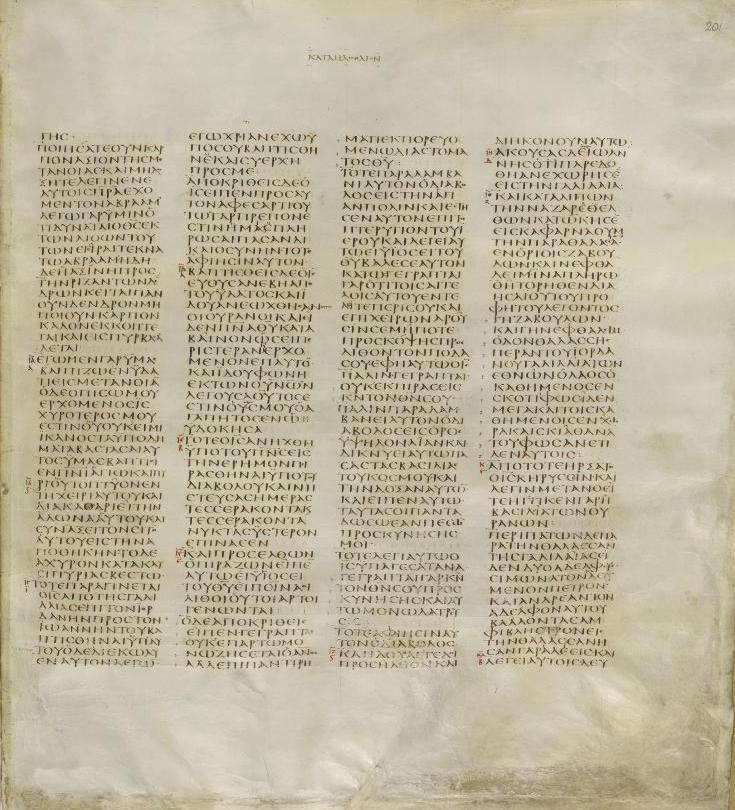 ΚΑΤΑΜΑΘΘΑΙΟΝ
ΓΗϹ·
ΠΟΙΗϹΑΤΕΟΥΝΚΑΡ
ΠΟΝΑΞΙΟΝΤΗϹΜΕ
ΤΑΝΟΙΑϹΚΑΙΜΗΔΟ
ΞΗΤΕΛΕΓΙΝΕΝΕ
ΑΥΤΟΙϹΠΡΑΕΧΟ
ΜΕΝΤΟΝΑΒΡΑΑΜ
ΛΕΓΩΓΑΡΥΜΙΝΟ
ΔΥΝΑΤΑΙΟΘϹΕΚ
ΤΩΝΛΙΘΩΝΤΟΥ
ΤΩΝΕΓΙΡΑΙΤΕΚΝΑ
ΤΩΑΒΡΑΑΜΗΔΗ
ΔΕΗΑΞΙΝΗΠΡΟϹ
ΤΗΝΡΙΖΑΝΤΩΝΔΕ
ΔΡΩΝΚΕΙΤΑΙΠΑΝ
ΟΥΝΔΕΝΔΡΟΝΜΗ
ΠΟΙΟΥΝΚΑΡΠΟΝ
ΚΑΛΟΝΕΚΚΟΠΤΕ
ΤΑΙΚΑΙΕΙϹΠΥΡΒΑΛ
ΛΕΤΑΙ
ΕΓΩΜΕΝΓΑΡΥΜΑϹ
ΒΑΠΤΙΖΩΕΝΥΔΑ
ΤΙΕΙϹΜΕΤΑΝΟΙΑ
ΟΔΕΟΠΙϹΩΜΟΥ
ΕΡΧΟΜΕΝΟϹΙϹ
ΧΥΡΟΤΕΡΟϹΜΟΥ
ΕϹΤΙΝΟΥΟΥΚΕΙΜΙ
ΙΚΑΝΟϹΤΑΥΠΟΔΗ
ΜΑΤΑΒΑϹΤΑϹΑΙΑΥ
ΤΟϹΥΜΑϹΒΑΠΤΙ
ϹΕΙΕΝΠΝΙΑΓΙΩΚΑΙ
ΠΥΡΙΟΥΤΟΠΤΥΟΝΕΝ
ΤΗΧΕΙΡΙΑΥΤΟΥΚΑΙ
ΔΙΑΚΑΘΑΡΙΕΙΤΗΝ
ΑΛΩΝΑΑΥΤΟΥΚΑΙ
ϹΥΝΑΞΕΙΤΟΝϹΙΤΟ
ΑΥΤΟΥΕΙϹΤΗΝΑ
ΠΟΘΗΚΗΝΤΟΔΕ
ΑΧΥΡΟΝΚΑΤΑΚΑΥ
ϹΙΠΥΡΙΑϹΒΕϹΤΩ
ΤΟΤΕΠΑΡΑΓΙΝΕΤΑΙ
ΟΙϹΑΠΟΤΗϹΓΑΛΙ
ΛΑΙΑϹΕΠΙΤΟΝΙΟΡ
ΔΑΝΗΝΠΡΟϹΤΟΝ
ΙΩΑΝΝΗΝΤΟΥΒΑ
ΠΤΙϹΘΗΝΑΙΥΠΑΥ
ΤΟΥΟΔΕΔΙΕΚΩΛΥ
ΕΝΑΥΤΟΝΛΕΓΩ
ΕΓΩΧΡΙΑΝΕΧΩΥ
ΠΟϹΟΥΒΑΠΤΙϹΘΗ
ΝΕΚΑΙϹΥΕΡΧΗ
ΠΡΟϹΜΕ
ΑΠΟΚΡΙΘΕΙϹΔΕΟ
ΙϹΕΙΠΕΝΠΡΟϹΑΥ
ΤΟΝΑΦΕϹΑΡΤΙΟΥ
ΤΩΓΑΡΠΡΕΠΟΝΕ
ϹΤΙΝΗΜΑϹΠΛΗ
ΡΩϹΑΙΠΑϹΑΝΔΙ
ΚΑΙΟϹΥΝΗΝΤΟΤΕ
ΑΦΙΗϹΙΝΑΥΤΟΝ
ΒΑΠΤΙϹΘΕΙϹΔΕΟΙϹ
ΕΥΘΥϹΑΝΕΒΗΑΠΟ
ΤΟΥΥΔΑΤΟϹΚΑΙΙ
ΔΟΥΑΝΕΩΧΘΗϹΑΝ
ΟΙΟΥΡΑΝΟΙΚΑΙ
ΔΕΝΠΝΑΘΥΚΑΤΑ
ΒΑΙΝΟΝΩϹΕΙΠΕ
ΡΙϹΤΕΡΑΝΕΡΧΟ
ΜΕΝΟΝΕΠΑΥΤΟ
ΚΑΙΙΔΟΥΦΩΝΗ
ΕΚΤΩΝΟΥΝΩΝ
ΛΕΓΟΥϹΑΟΥΤΟϹΕ
ϹΤΙΝΟΥϹΜΟΥΟΑ
ΓΑΠΗΤΟϹΕΝΩΕΥ
ΔΟΚΗϹΑ
ΤΟΤΕΟΙϹΑΝΗΧΘΗ
ΥΠΟΤΟΥΠΝϹΕΙϹ
ΤΗΝΕΡΗΜΟΝΠΙ
ΡΑϹΘΗΝΑΙΥΠΟΤΟΥ
ΔΙΑΒΟΛΟΥΚΑΙΝΗ
ϹΤΕΥϹΑϹΗΜΕΡΑϹ
ΤΕϹϹΕΡΑΚΟΝΤΑ
ΚΑΙΤΕϹϹΕΡΑΚΟΝΤΑ
ΝΥΚΤΑϹΥϹΤΕΡΟΝ
ΕΠΙΝΑϹΕΝ
ΚΑΙΠΡΟϹΕΛΘΩΝ
ΟΠΙΡΑΖΩΝΕΙΠΕ
ΑΥΤΩΕΙΥΙΟϹΕΙ
ΤΟΥΘΥΕΙΠΟΙΝΑΟΙ
ΛΙΘΟΙΟΥΤΟΙΑΡΤΟΙ
ΓΕΝΩΝΤΑΙ
ΟΔΕΑΠΟΚΡΙΘΕΙϹ
ΕΙΠΕΝΓΕΓΡΑΠΤΑΙ
ΟΥΚΕΠΑΡΤΩΜΟ
ΝΩΖΗϹΕΤΑΙΟΑΝΟϹ
ΑΛΛΕΠΙΠΑΝΤΙΡΗ
ΜΑΤΙΕΚΠΟΡΕΥΟ
ΜΕΝΩΔΙΑϹΤΟΜΑ
ΤΟϹΘΥ
ΤΟΤΕΠΑΡΑΛΑΜΒΑ
ΝΙΑΥΤΟΝΟΔΙΑΒΟ
ΛΟϹΕΙϹΤΗΝΑΓΙ
ΑΝΠΟΛΙΝΚΑΙΕϹΤΗ
ϹΕΝΑΥΤΟΝΕΠΙΤΟ
ΠΤΕΡΥΓΙΟΝΤΟΥΙ
ΕΡΟΥΚΑΙΛΕΓΕΙΑΥ
ΤΩΕΙΥΙΟϹΕΙΤΟΥ
ΘΥΒΑΛΕϹΕΑΥΤΟΝ
ΚΑΤΩΓΕΓΡΑΠΤΑΙ
ΓΑΡΟΤΙΤΟΙϹΑΓΓΕ
ΛΟΙϹΑΥΤΟΥΕΝΤΕ
ΛΕΙΤΕΠΕΡΙϹΟΥΚΑΙ
ΕΠΙΧΕΙΡΩΝΑΡΟΥ
ϹΙΝϹΕΜΗΠΟΤΕ
ΠΡΟϹΚΟΨΗϹΠΡΟϹ
ΛΙΘΟΝΤΟΝΠΟΔΑ
ϹΟΥΕΦΗΑΥΤΩΟΙϹ
ΠΑΛΙΝΓΕΓΡΑΠΤΑΙ
ΟΥΚΕΚΠΙΡΑϹΕΙϹ
ΚΝΤΟΝΘΝϹΟΥ
ΠΑΛΙΝΠΑΡΑΛΑΜ
ΒΑΝΕΙΑΥΤΟΝΟΔΙ
ΑΒΟΛΟϹΕΙϹΟΡΟϹ
ΥΨΗΛΟΝΛΙΑΝΚΑΙ
ΔΙΚΝΥΕΙΑΥΤΩΠΑ
ϹΑϹΤΑϹΒΑϹΙΛΕΙΑϹ
ΤΟΥΚΟϹΜΟΥΚΑΙ
ΤΗΝΔΟΞΑΝΑΥΤΩ
ΚΑΙΕΙΠΕΝΑΥΤΩ
ΤΑΥΤΑϹΟΙΠΑΝΤΑ
ΔΩϹΩΕΑΝΠΕϹΩΝ
ΠΡΟϹΚΥΝΗϹΗϹ
ΜΟΙ
ΤΟΤΕΛΕΓΙΑΥΤΩΟ
ΙϹΥΠΑΓΕϹΑΤΑΝΑ
ΓΕΓΡΑΠΤΑΙΓΑΡΚΝ
ΤΟΝΘΝϹΟΥΠΡΟϹ
ΚΥΝΗϹΗϹΚΑΙΑΥ
ΤΩΜΟΝΩΛΑΤΡΕΥ
ϹΙϹ
ΤΟΤΕΑΦΙΗϹΙΝΑΥ
ΤΟΝΟΔΙΑΒΟΛΟϹ
ΚΑΙΙΔΟΥΑΓΓΕΛΟΙ
ΠΡΟϹΗΛΘΟΝΚΑΙ
ΔΙΗΚΟΝΟΥΝΑΥΤΩ
ΑΚΟΥϹΑϹΔΕΟΤΙΙΩΑΝ
ΝΗϹΟΤΙΠΑΡΕΔΟ
ΘΗΑΝΕΧΩΡΗϹΕ
ΕΙϹΤΗΝΓΑΛΙΛΑΙΑ
ΚΑΙΚΑΤΑΛΙΠΩΝ
ΤΗΝΝΑΖΑΡΕΘΕΛ
ΘΩΝΚΑΤΩΚΗϹΕ
ΕΙϹΚΑΦΑΡΝΑΟΥΜ
ΤΗΝΠΑΡΑΘΑΛΑϹϹΑ
ΕΝΟΡΙΟΙϹΖΑΒΟΥ
ΛΩΝΚΑΙΝΕΦΘΑ
ΛΕΙΜΙΝΑΠΛΗΡΩ
ΘΗΤΟΡΗΘΕΝΔΙΑ
ΗϹΑΙΟΥΤΟΥΠΡΟ
ΦΗΤΟΥΛΕΓΟΝΤΟϹ
ΓΗΖΑΒΟΥΛΩΝ
ΚΑΙΓΗΝΕΦΘΑΛΙΜ
ΟΔΟΝΘΑΛΑϹϹΗϹ
ΠΕΡΑΝΤΟΥΙΟΡΔΑ
ΝΟΥΓΑΛΙΛΑΙΑΤΩΝ
ΕΘΝΩΝΟΛΑΟϹΟ
ΚΑΘΗΜΕΝΟϹΕΝ
ϹΚΟΤΙΦΩϹΙΔΕΝ
ΜΕΓΑΚΑΙΤΟΙϹΚΑ
ΘΗΜΕΝΟΙϹΕΝΧΩ
ΡΑΚΑΙϹΚΙΑΘΑΝΑ
ΤΟΥΦΩϹΑΝΕΤΙ
ΛΕΝΑΥΤΟΙϹ
ΑΠΟΤΟΤΕΗΡΞΑΤΟ
ΟΙϹΚΗΡΥϹϹΙΝΚΑΙ
ΛΕΓΙΝΜΕΤΑΝΟΕΙ
ΤΕΗΓΓΙΚΕΝΓΑΡΗ
ΒΑϹΙΛΙΑΤΩΝΟΥ
ΡΑΝΩΝ
ΠΕΡΙΠΑΤΩΝΔΕΠΑ
ΡΑΤΗΝΘΑΛΑϹϹΑΝ
ΤΗϹΓΑΛΙΛΑΙΑϹΕΙ
ΔΕΝΔΥΟΑΔΕΛΦΟΥϹ
ϹΙΜΩΝΑΤΟΝΛΕΓΟ
ΜΕΝΟΝΠΕΤΡΟΝ
ΚΑΙΑΝΔΡΕΑΝΤΟΝ
ΑΔΕΛΦΟΝΑΥΤΟΥ
ΒΑΛΛΟΝΤΑϹΑΜ
ΦΙΒΛΗϹΤΡΟΝΕΙϹ
ΤΗΝΘΑΛΑϹϹΑΝΗ
ϹΑΝΓΑΡΑΛΕΕΙϹΚΑΙ
ΛΕΓΕΙΑΥΤΟΙϹΔΕΥ